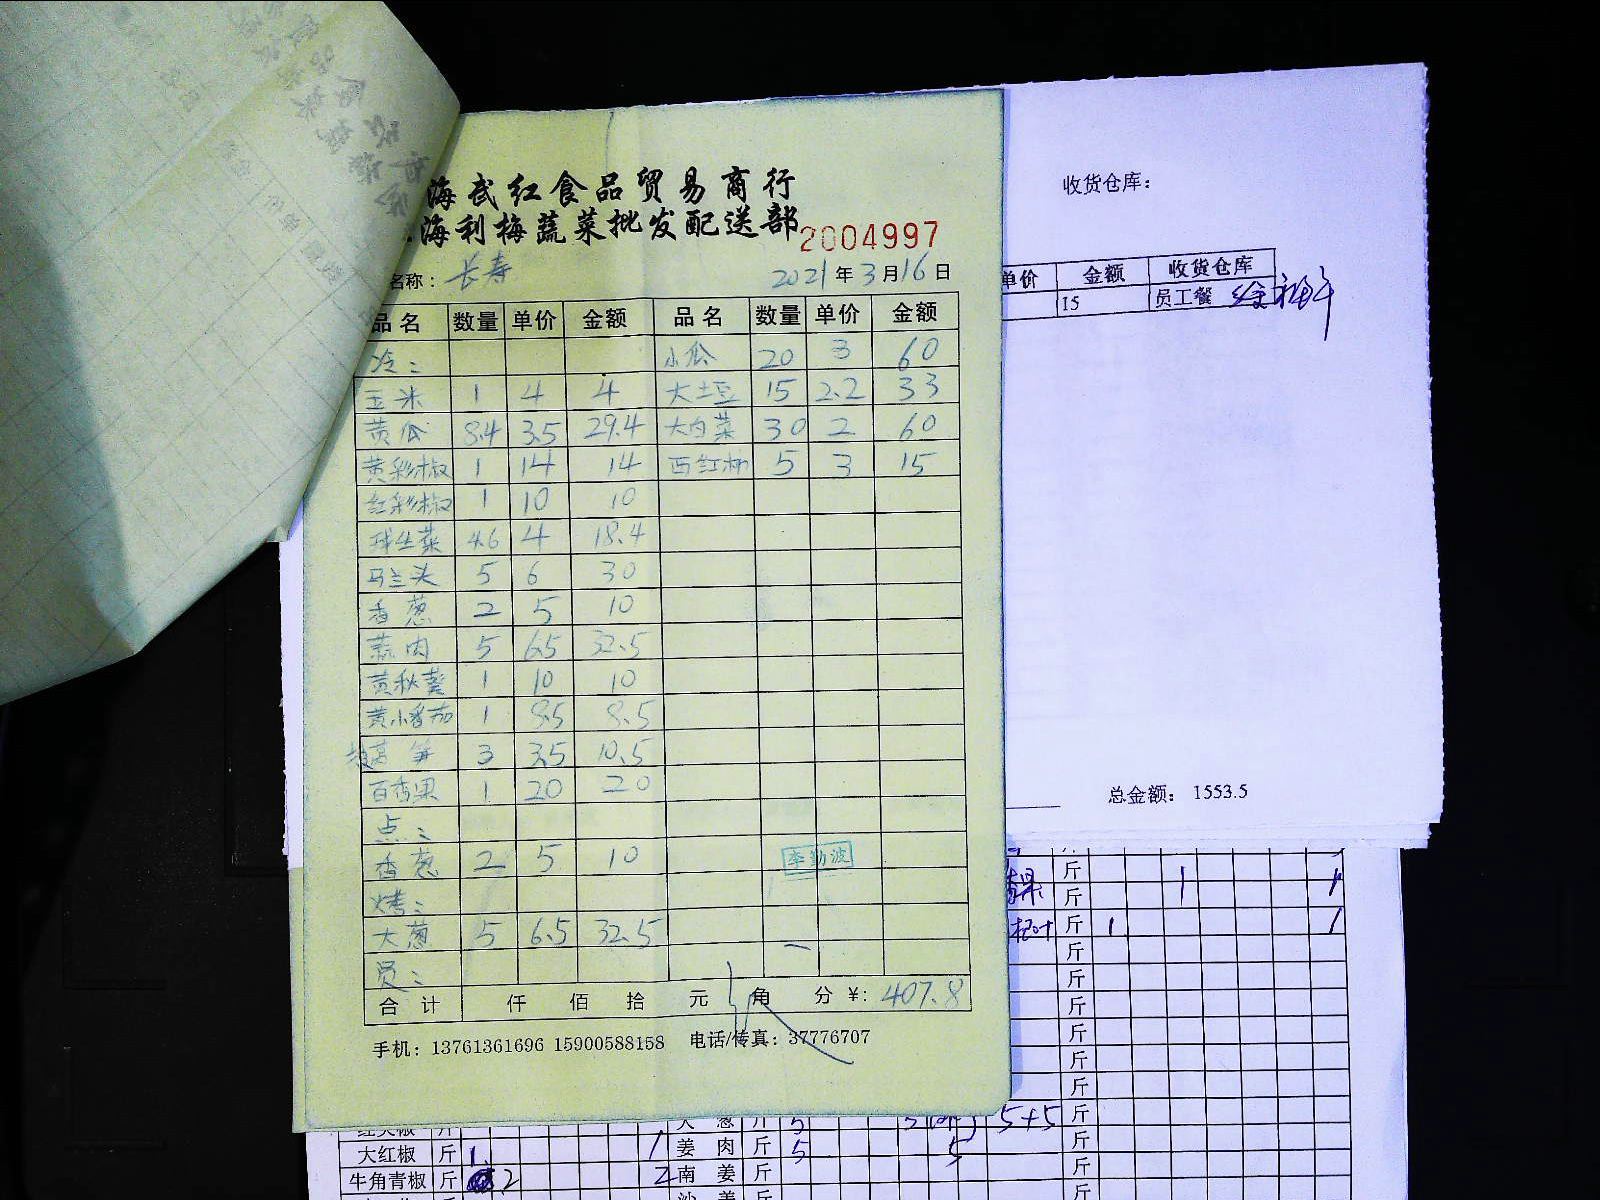 海武红食品贸易商行
海利梅蔬菜批发配送部 2004997
名称：长寿 2021年3月16日
品名 数量 单价 金额 品名 数量 单价 金额
冷： 小瓜 20 3 60
玉米 1 4 4 大土豆 15 2.2 33
黄瓜 8.4 3.5 29.4 大白菜 30 2 60
黄彩椒 1 14 14 西红柿 5 3 15
红彩椒 1 10 10
球生菜 4.6 4 18.4
马兰头 5 6 30
香葱 2 5 10
蒜肉 5 6.5 32.5
黄秋葵 1 10 10
黄小番茄 1 8.5 8.5
莴笋 3 3.5 10.5
百香果 1 20 20
点：
香葱 2 5 10
李勤波
烤：
大葱 5 6.5 32.5
员：
合计 仟 佰 拾 元 角 分 ¥: 407.8
手机：13761361696 15900588158 电话/传真：37776707
收货仓库：
单价 金额 收货仓库
15 员工餐
总金额： 1553.5
斤 1 1
斤
斤 1 1
斤
斤
斤
斤
斤
斤
斤 5+5
大红椒 斤 1 1 姜肉 斤 5 5 斤
牛角青椒 斤 2 2 南姜 斤 斤